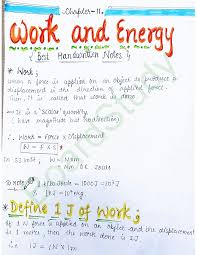 Chapter-11.
Work and Energy
{ Best Handwritten Notes }
* Work ;
when a force is applied on an object to produce a
displacement in the direction of applied force.
then, it is called that work is done.
→ It is a "Scalar" quantity,
( have magnitude but direction)
∴ Work = Force × Displacement
W = F × S
In SI unit ; W = Nm
= J
1 kilo Joule = 1000J
* Define 1 J of Work ;
If 1 N force is applied on an object and the displacement
is 1 meter, then the work done is 1J.
i.e 1J = 1N × 1m